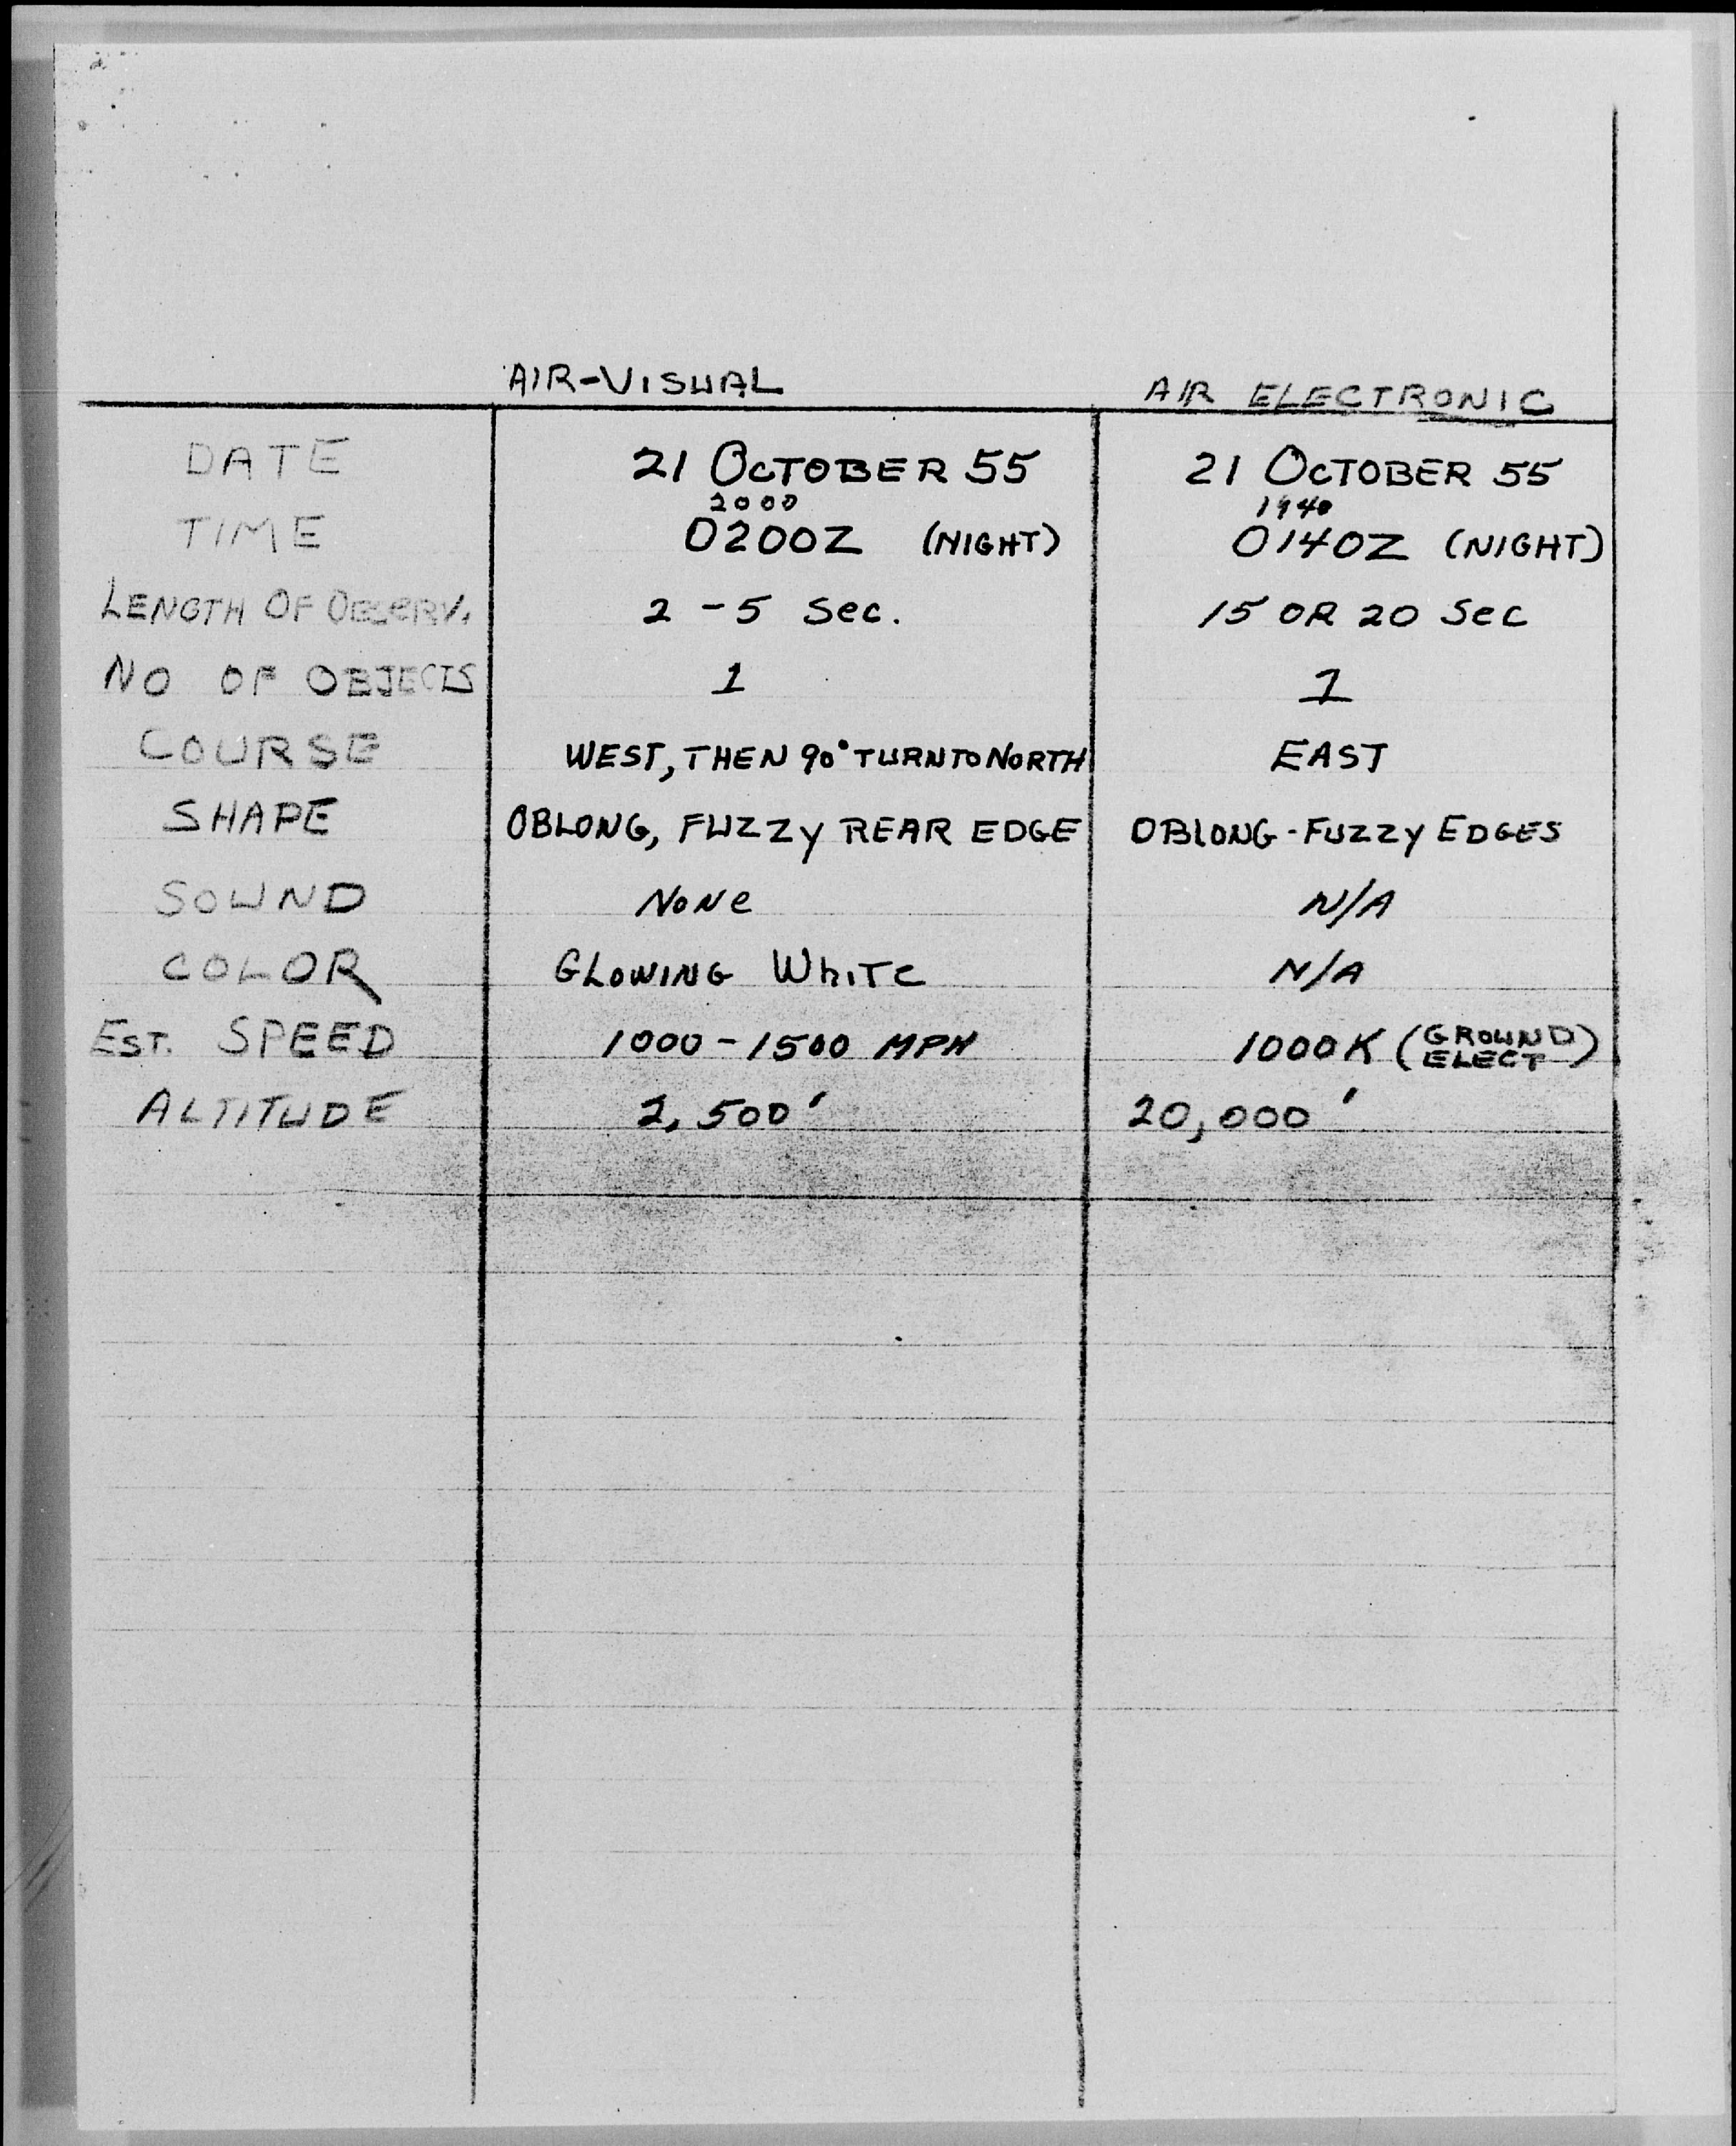 AIR-VISUAL AIR ELECTRONIC
DATE 21 OCTOBER 55 21 OCTOBER 55
2000 1940
TIME 0200Z (NIGHT) 0140Z (NIGHT)
LENGTH OF OBSERV. 2 - 5 Sec. 15 OR 20 Sec
NO OF OBJECTS 1 1
COURSE WEST, THEN 90° TURN TO NORTH EAST
SHAPE OBLONG, FUZZY REAR EDGE OBLONG - FUZZY EDGES
SOUND NONe N/A
COLOR GLOWING WhiTe N/A
EST. SPEED 1000 - 1500 MPH 1000K (GROUND ELECT)
ALTITUDE 2,500' 20,000'